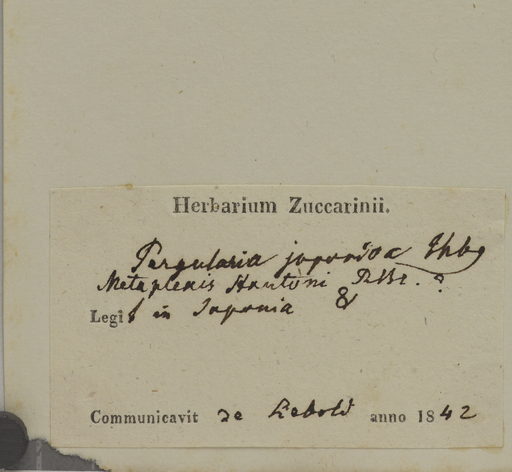 Herbarium Zuccarinii.
Pergularia japonica Thbg
Metaplexis Stauntoni R&S. ?
Legit in Japonia
Communicavit de Siebold anno 1842